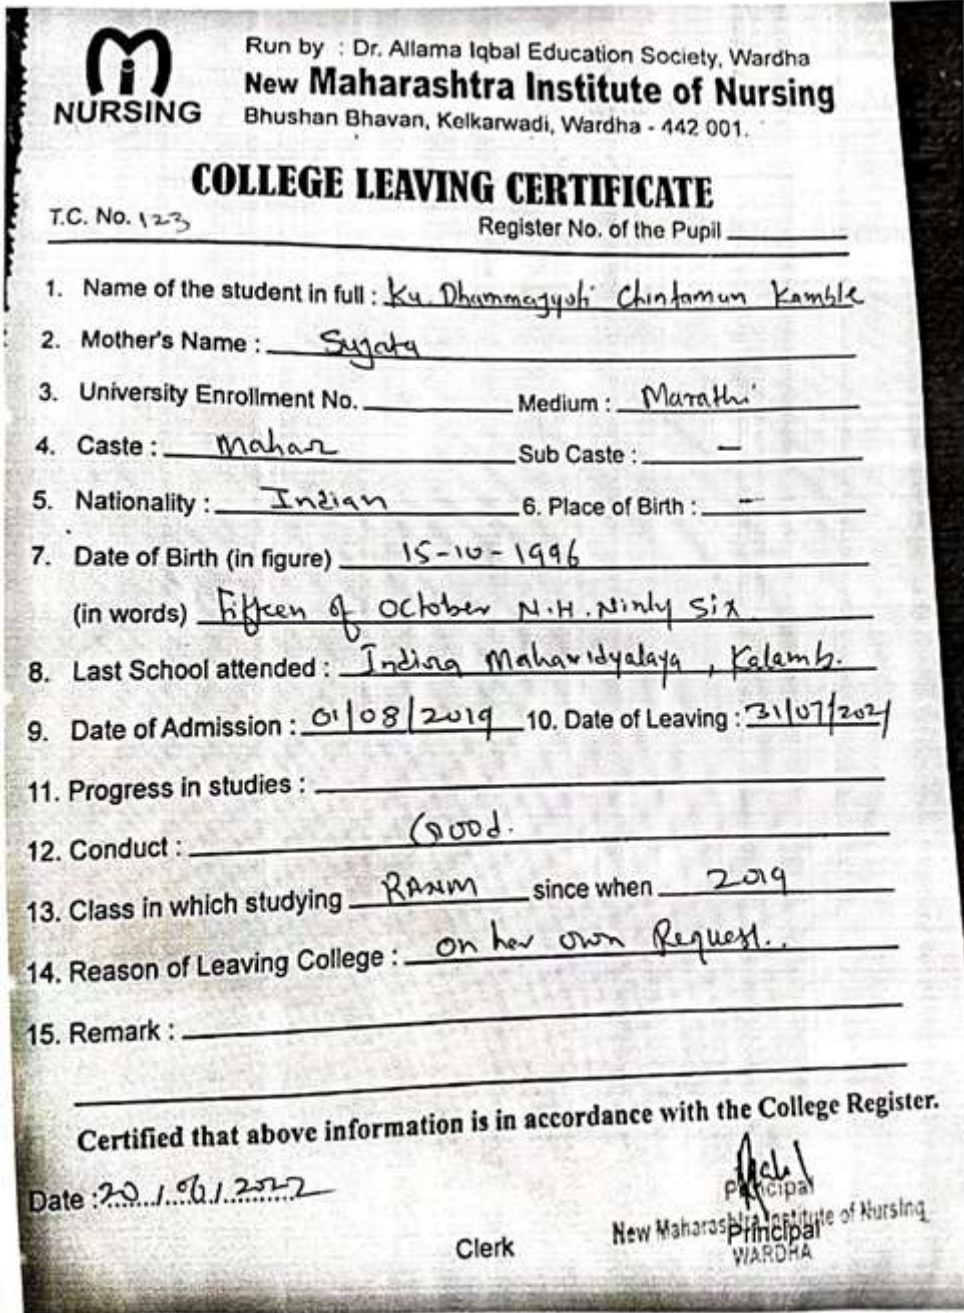 NURSING
Run by : Dr. Allama Iqbal Education Society, Wardha
New Maharashtra Institute of Nursing
Bhushan Bhavan, Kelkarwadi, Wardha - 442 001.
COLLEGE LEAVING CERTIFICATE
T.C. No. 123 Register No. of the Pupil
1. Name of the student in full : Ku. Dhammajyoti Chintaman Kamble
2. Mother's Name : Sujata
3. University Enrollment No. Medium : Marathi
4. Caste : Mahar Sub Caste : —
5. Nationality : Indian 6. Place of Birth : —
7. Date of Birth (in figure) 15-10-1996
(in words) Fifteen of October N.H. Ninly Six
8. Last School attended : Indira Mahavidyalaya, Kalamb.
9. Date of Admission : 01/08/2019 10. Date of Leaving : 31/07/2021
11. Progress in studies :
12. Conduct : Good.
13. Class in which studying RANM since when 2019
14. Reason of Leaving College : on her own Request..
15. Remark :
Certified that above information is in accordance with the College Register.
Date : 20/ /2022
Principal
New Maharashtra Institute of Nursing
Principal
WARDHA
Clerk